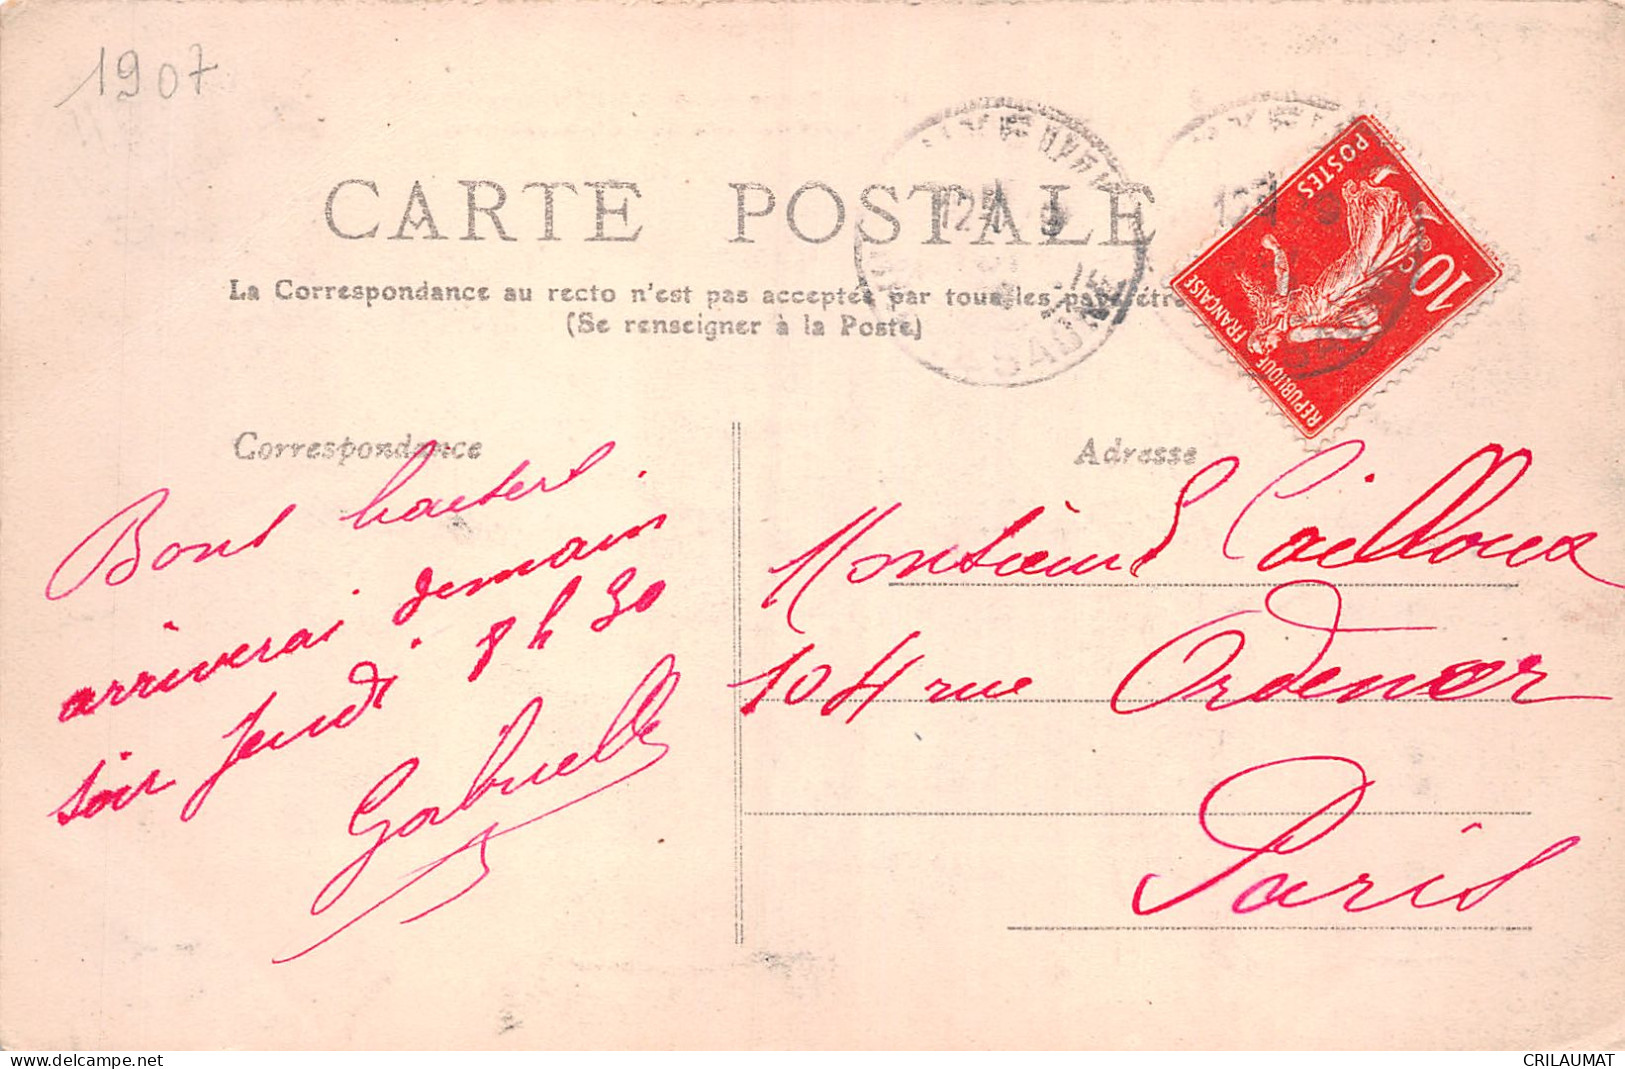 1907
CARTE POSTALE
La Correspondance au recto n'est pas acceptée par tous les pays étr
(Se renseigner à la Poste)
POSTES
10c
REPUBLIQUE FRANÇAISE
Correspondance
Adresse
Bons baisers.
arriverai demain
soir jeudi 8h30
Gabrielle
Monsieur Cailloux
104 rue Ordener
Paris
delcampe.net
CRILAUMAT